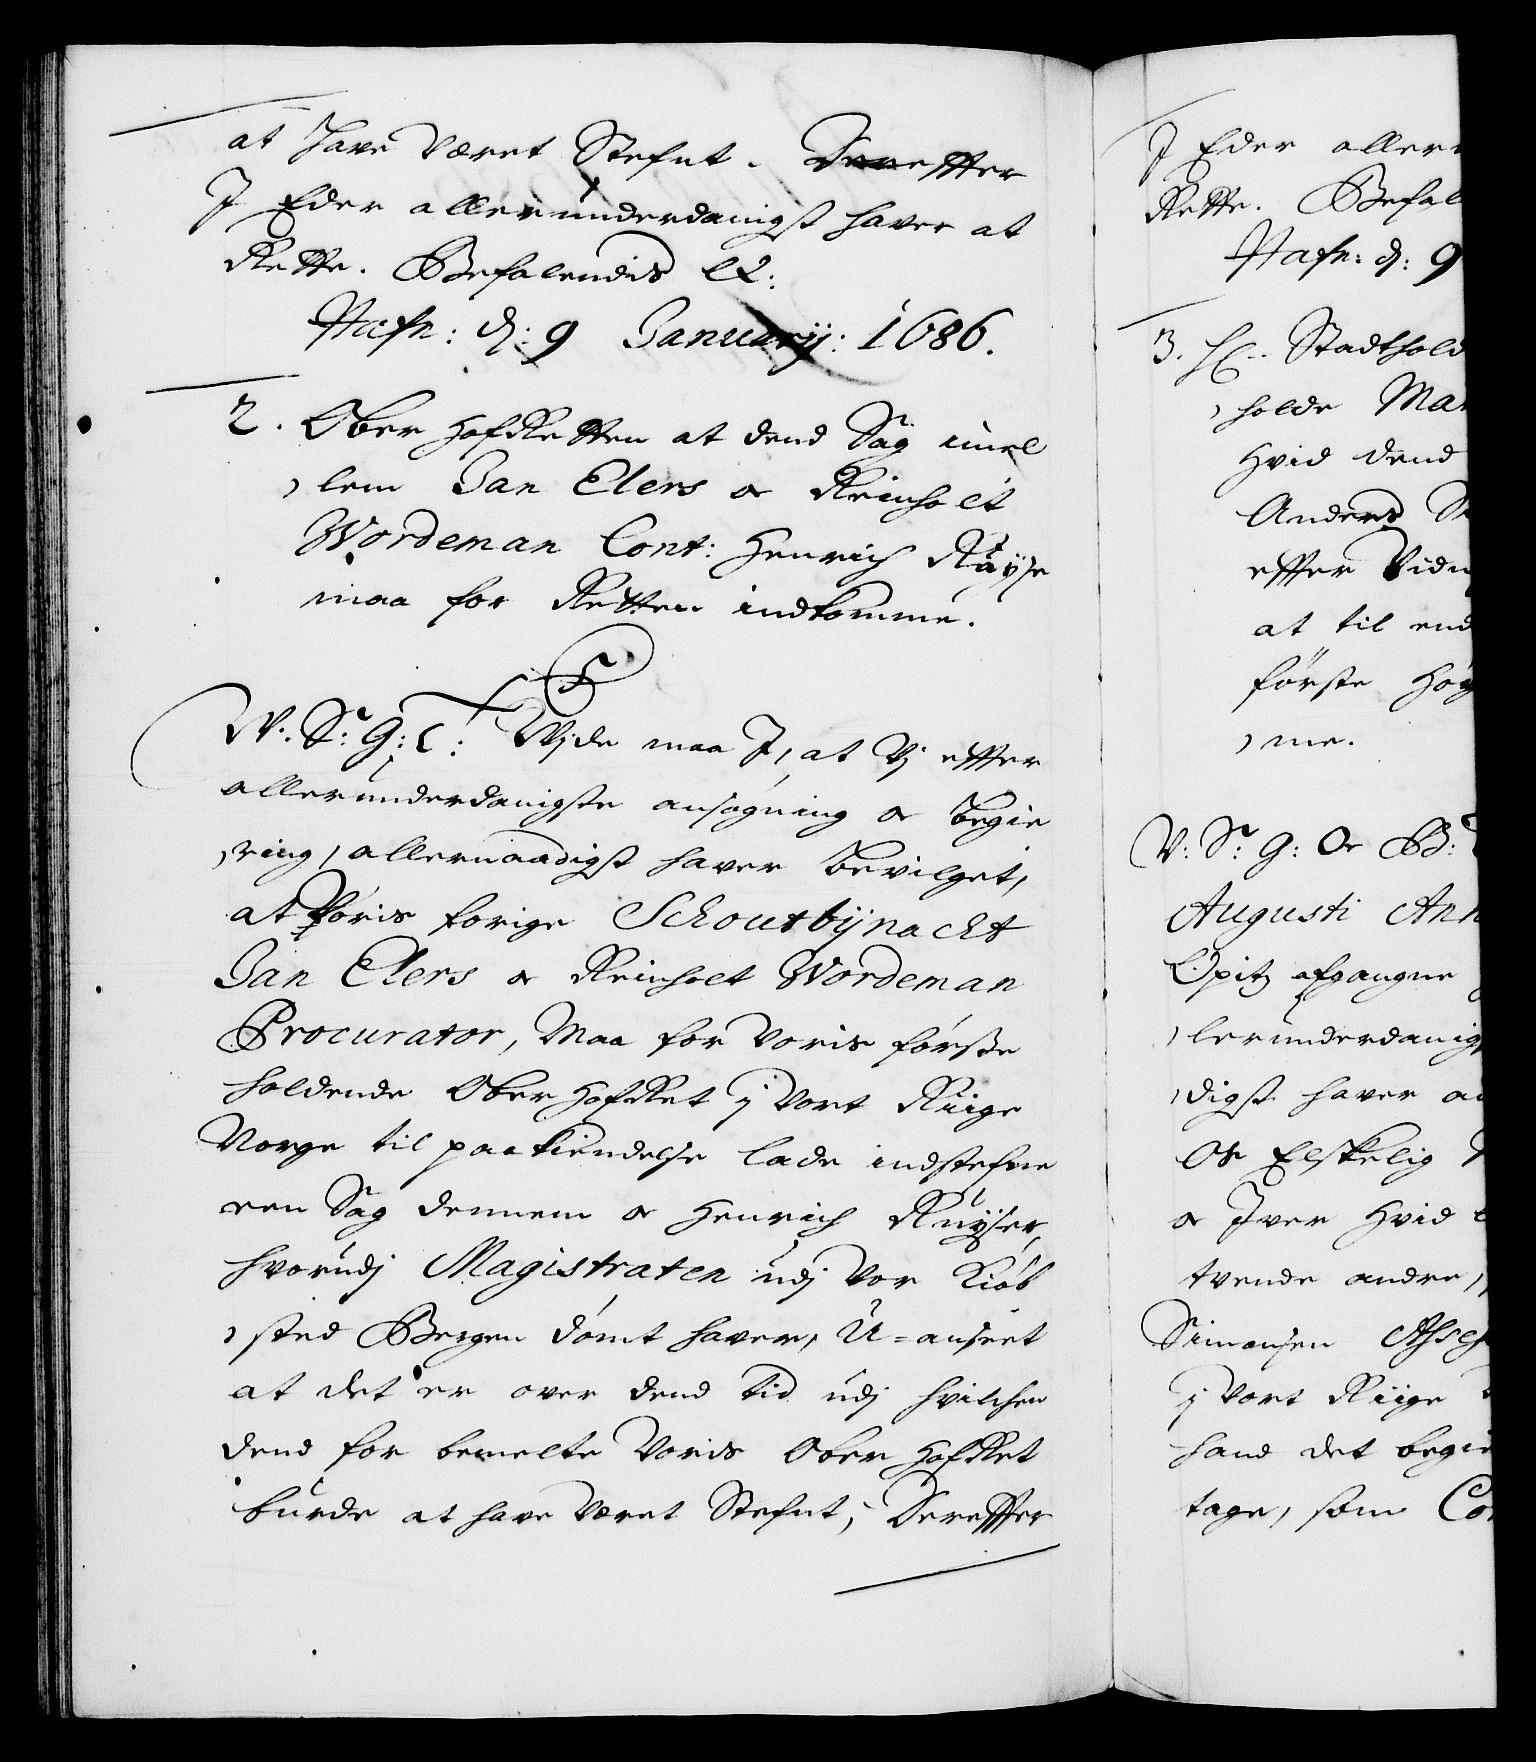 at have været Stefnt. Dereffter
J Eder allerunderdanigst haver at
Rette. Befalendis etc:
Hafn: d: 9 Januarij: 1686.
2. Ober HofRetten at dend Sag imel
lem Jan Elers oc Reinholt
Wordeman Cont: Henrich Ruyse
maa for Retten indkomme.
C5
W. Sr: G: L: Wide maa J, at Vj effter
allerunderdanigste ansøgning oc begie
ring, allernaadigst haver bevilget,
at Voris forige Schoutbÿnacht
Jan Elers oc Reinholt Wordeman
Procurator, Maa for Voris første
holdende Ober HofRet j Vort Riige
Norge til paakiendelse lade indstefne
een Sag dennem oc Henrich Ruyser,
hvorudj Magistraten udj Vor Kiøb
sted Bergen dømt haver, U-anseet
at det er over dend tid udj hvilchen
dend for bemelte Voris Ober HofRet
burde at have været Stefnt, Dereffter
J Eder aller
Rette. Befal
Hafn: d: 9
3. H. Stadthold
holde Ma
Hvid dend
Anders
effter Vid
at til end
første Høy
me.
V: Sr: G: Oc B:
Augusti Ann
Opitz afgangne
lerunderdanig
digst haver
Os Elskelig
oc Jver Hvid
tvende andre,
Simonsen
j Vort Riige
hand det begie
tage, som Co